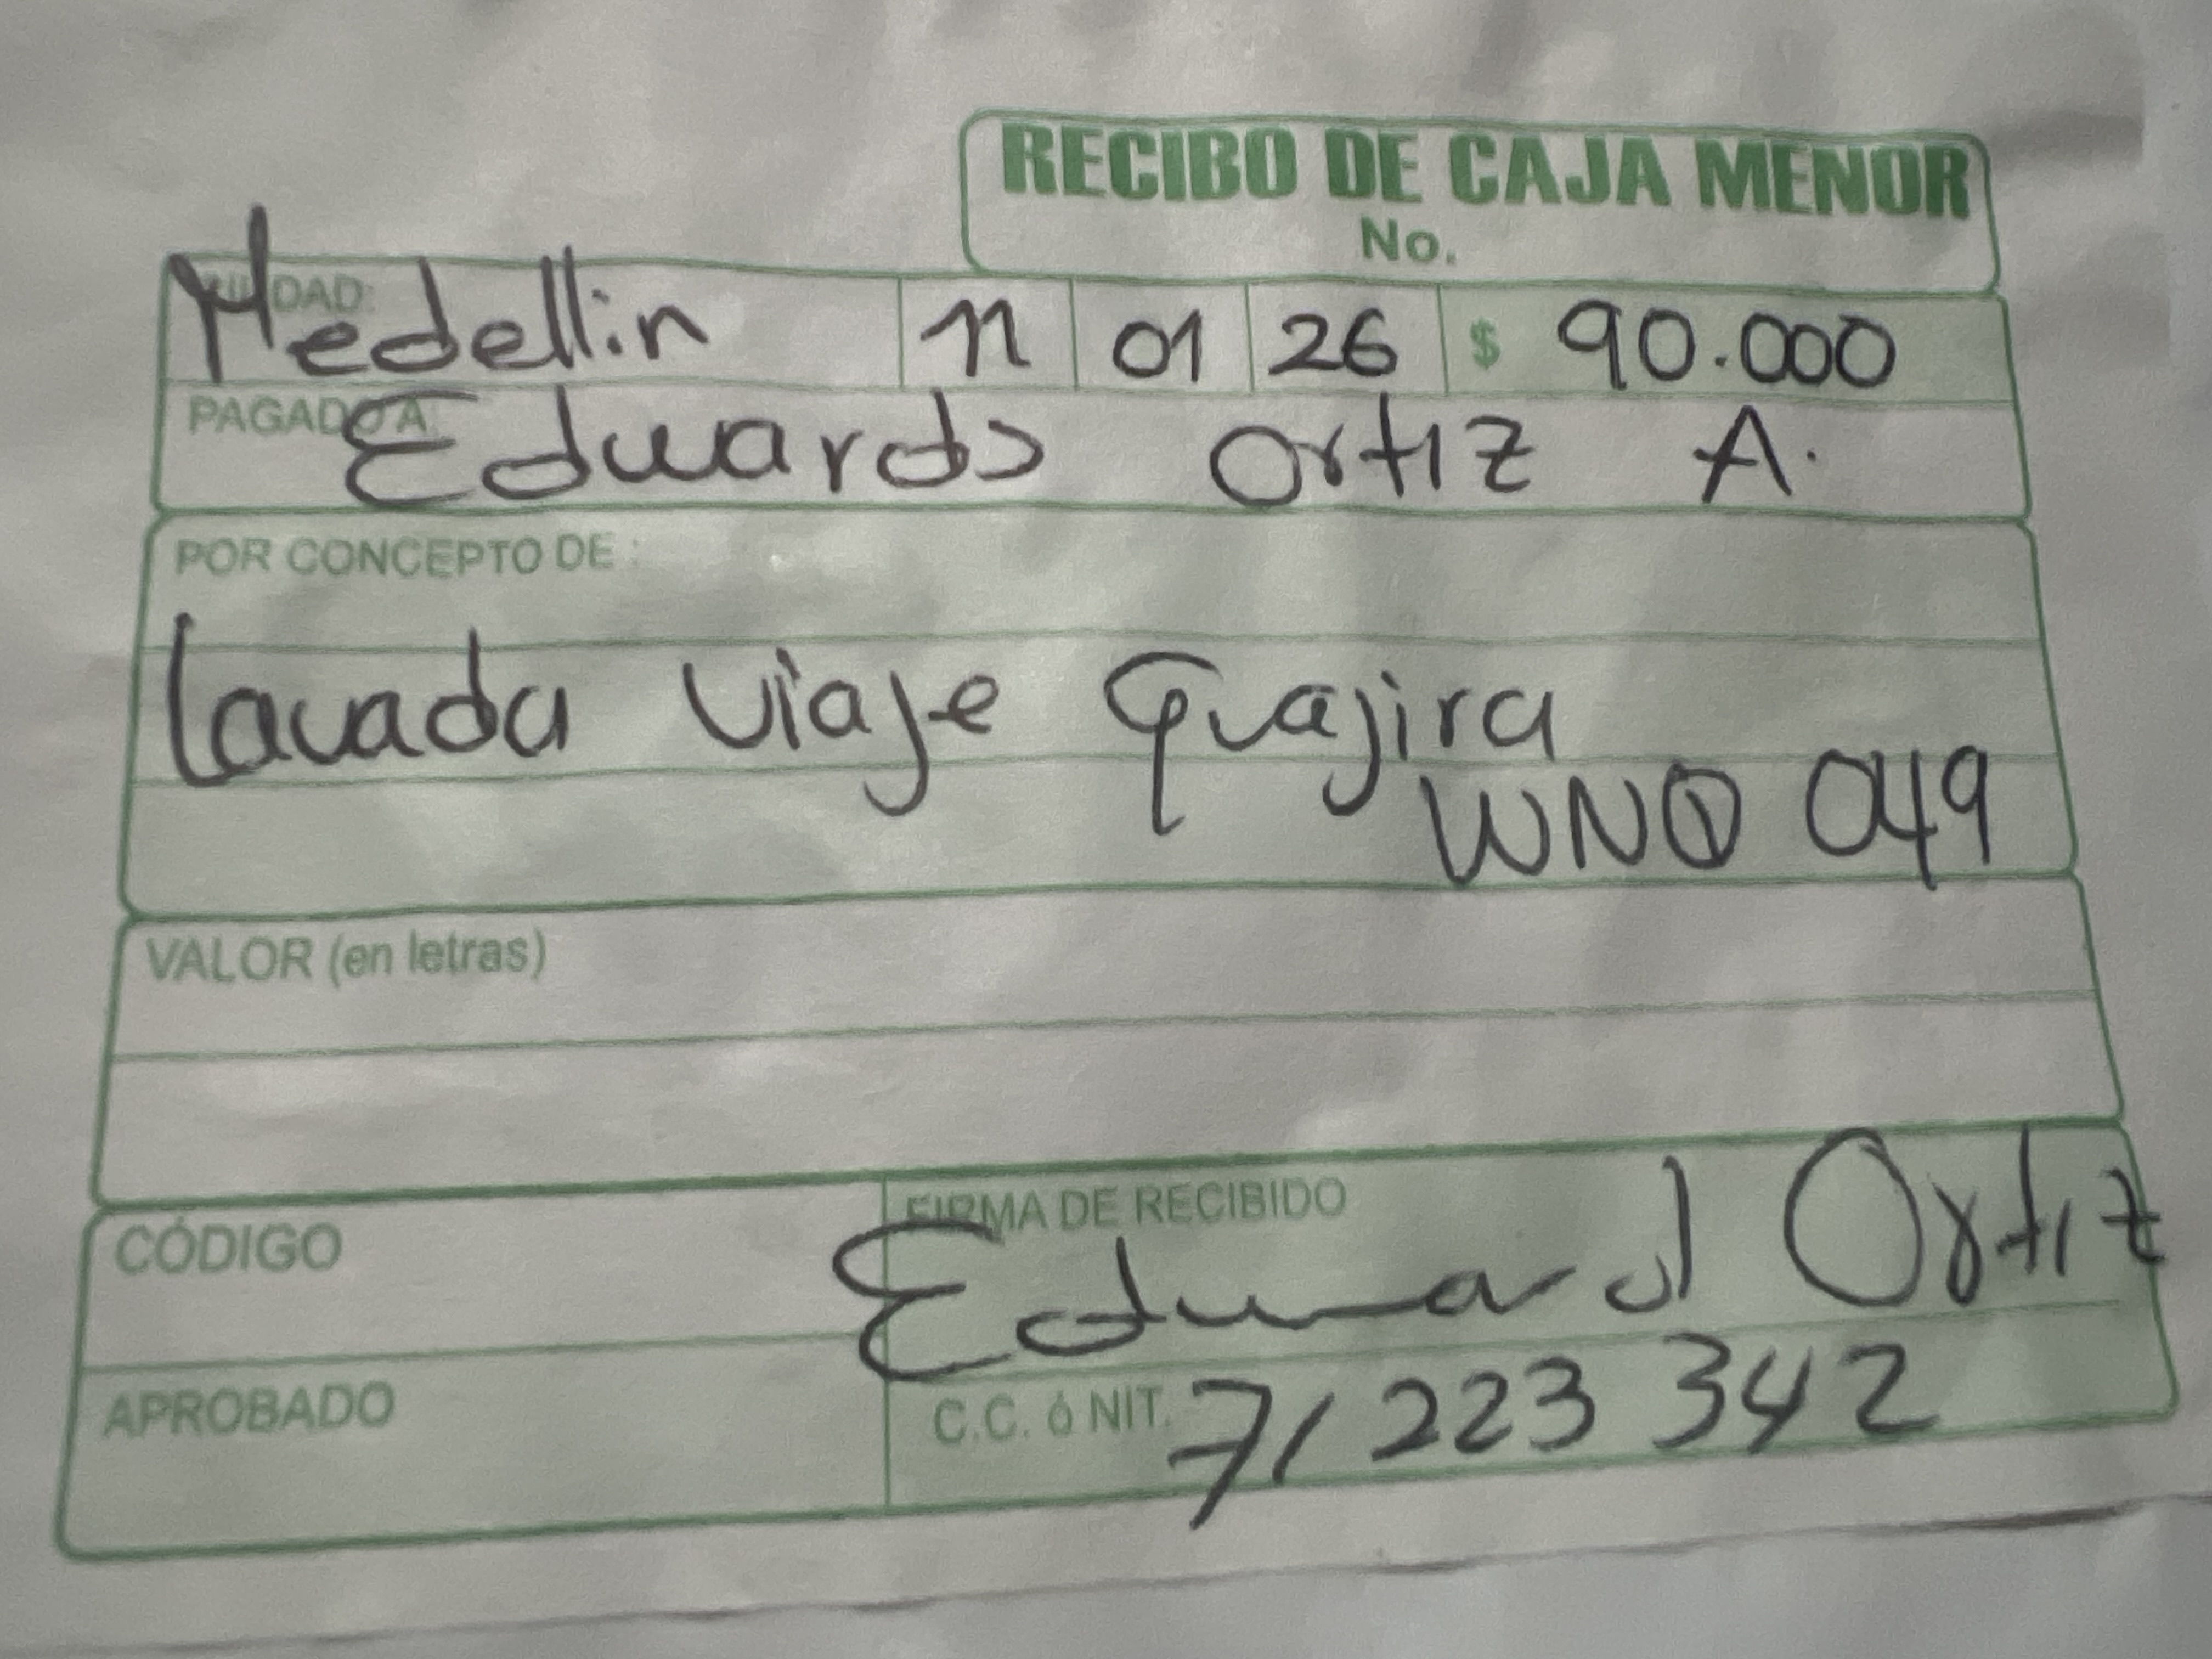 RECIBO DE CAJA MENOR
No.
Medellin 11 01 26 $ 90.000
PAGADO A: Edwards Ortiz A.
POR CONCEPTO DE :
lavada viaje Guajira
WNQ 049
VALOR (en letras)
CÓDIGO
FIRMA DE RECIBIDO
Eduard Ortiz
APROBADO
C.C. ó NIT. 71 223 342